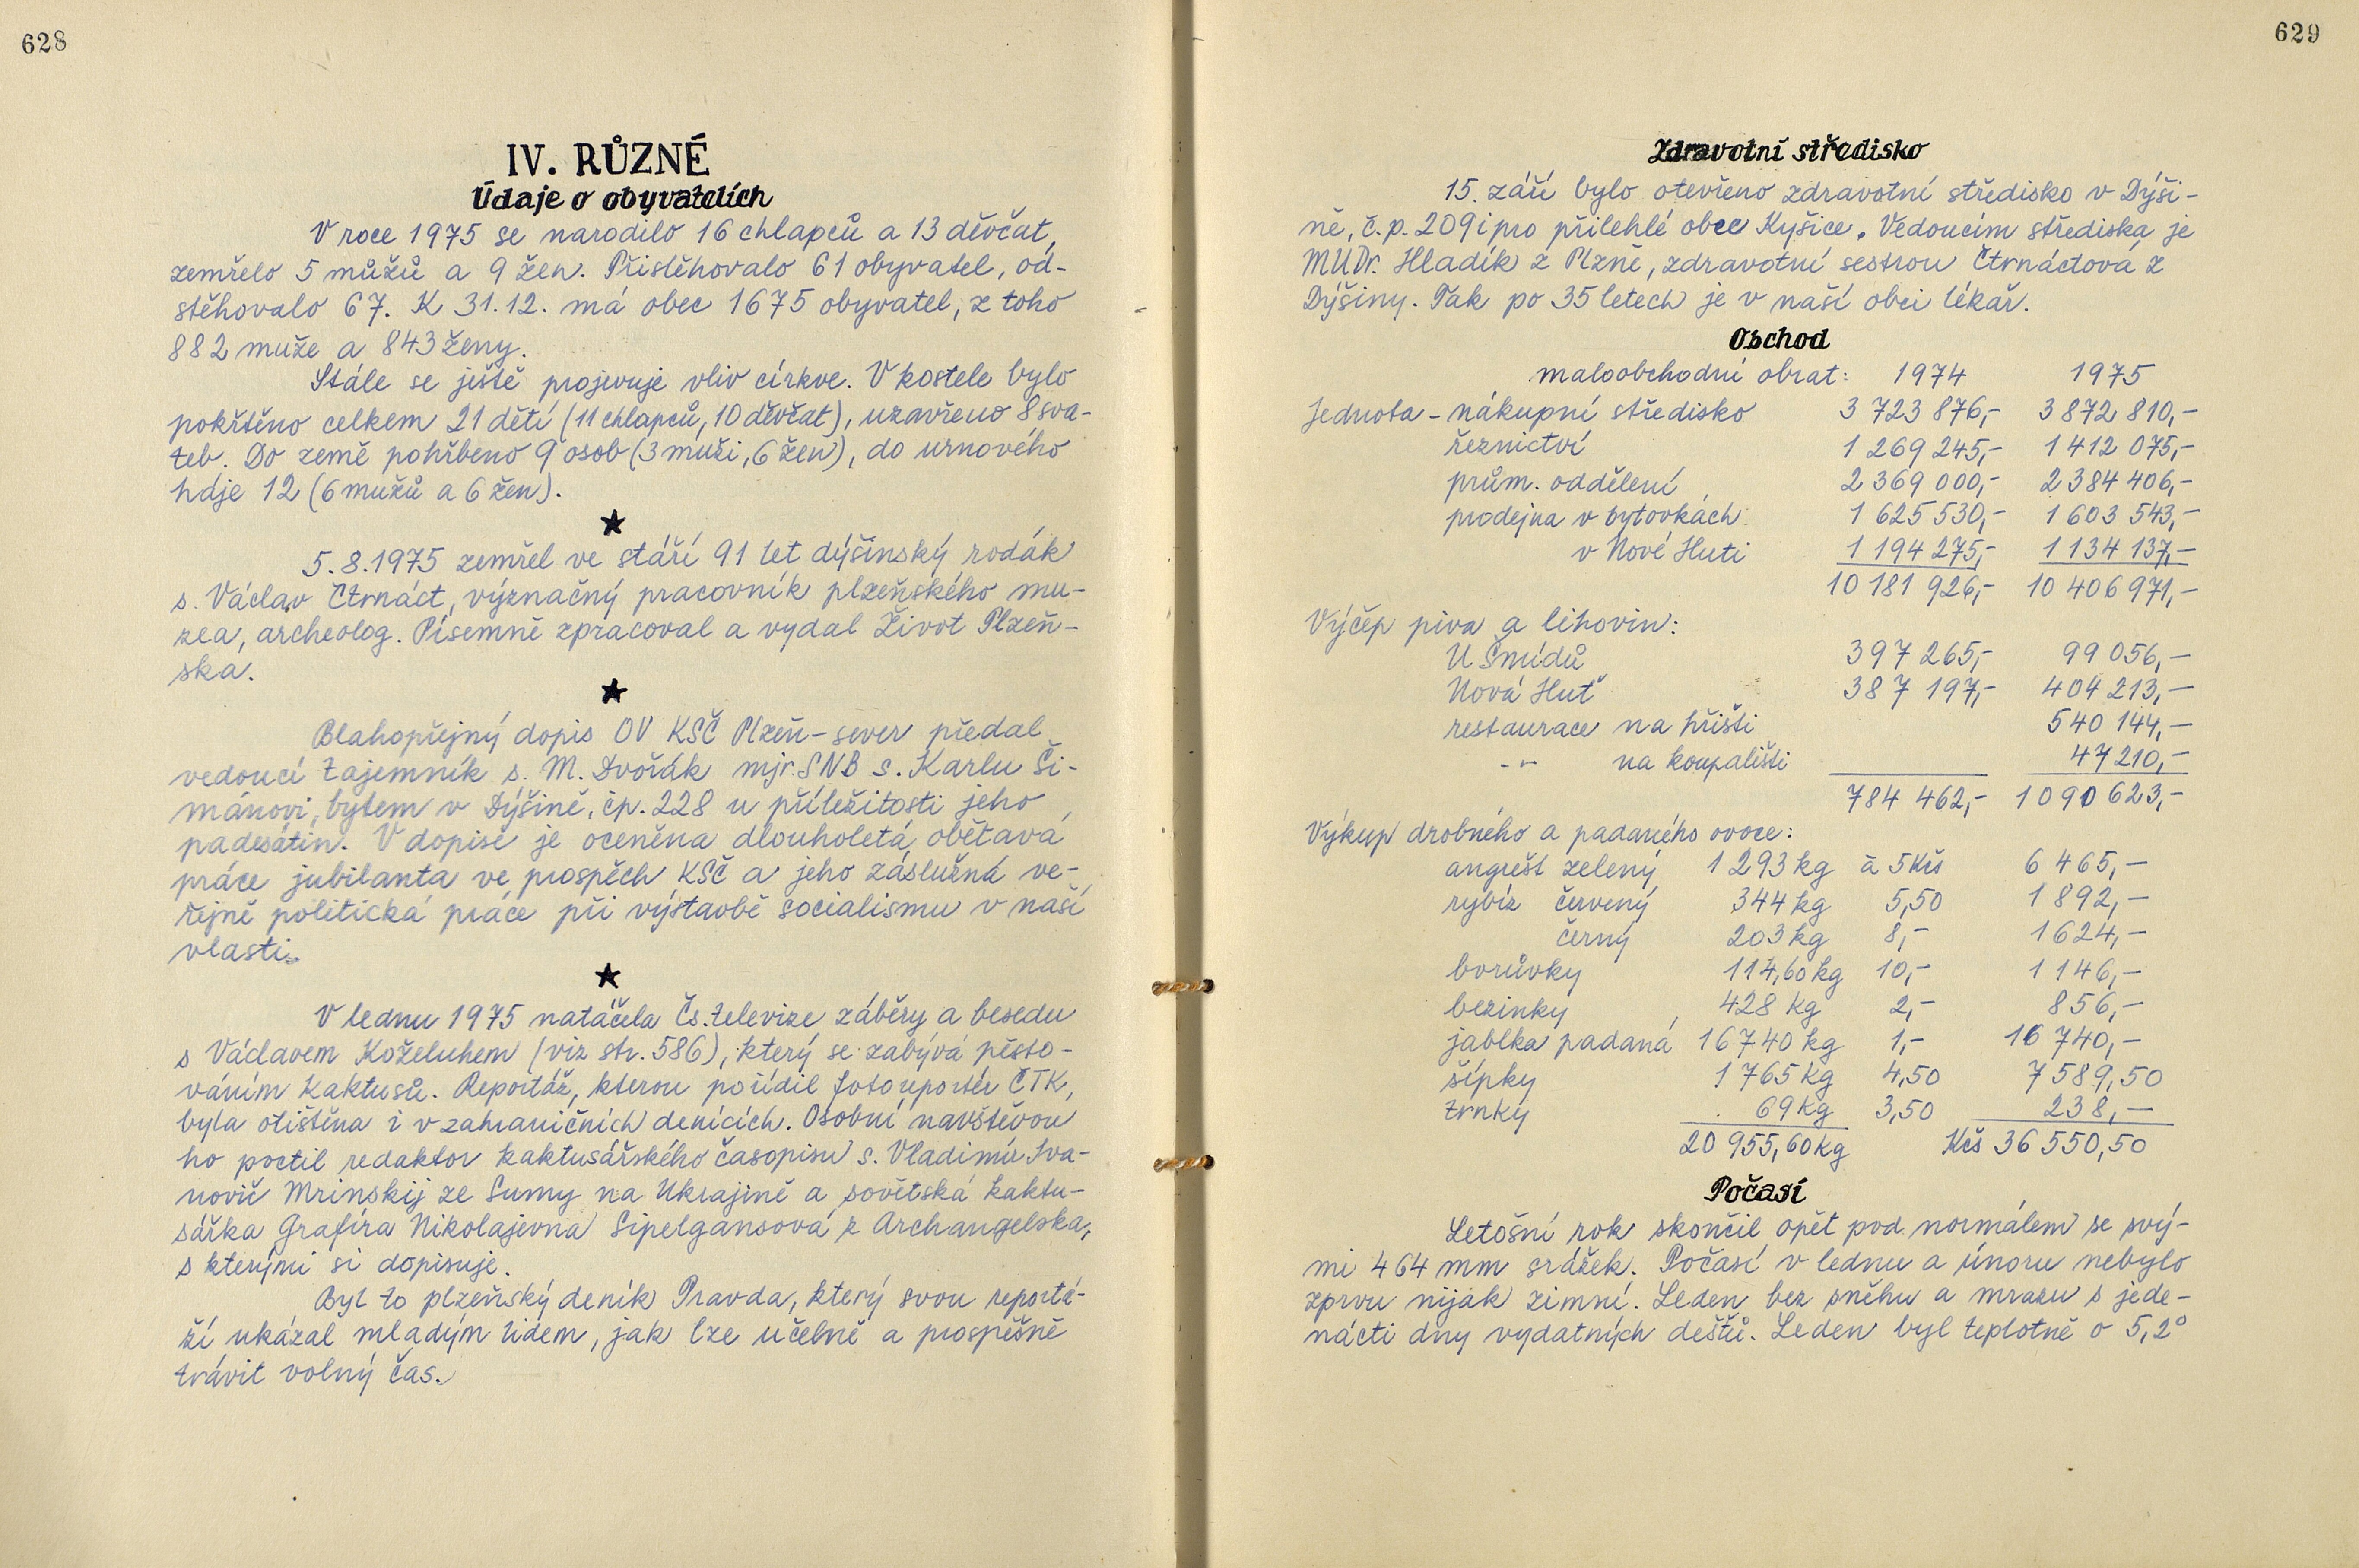 628
IV. RŮZNÉ
Údaje o obyvatelích
V roce 1975 se narodilo 16 chlapců a 13 děvčat,
zemřelo 5 můžů a 9 žen. Přistěhovalo 61 obyvatel, od-
stěhovalo 67. K 31.12. má obec 1675 obyvatel, z toho
882 muže a 843 ženy.
Stále se ještě projevuje vliv církve. V kostele bylo
pokřtěno celkem 21 dětí (11 chlapců, 10 děvčat), uzavřeno 8 sva-
teb. Do země pohřbeno 9 osob (3 muži, 6 žen), do urnového
háje 12 (6 mužů a 6 žen).
★
5.8.1975 zemřel ve stáří 91 let dýšinský rodák
s. Václav Čtrnáct, význačný pracovník plzeňského mu-
zea, archeolog. Písemně zpracoval a vydal Život Plzeň-
ska.
★
Blahopřejný dopis OV KSČ Plzeň-sever předal
vedoucí tajemník s. M. Dvořák mjr. SNB s. Karlu Ši-
mánovi, bytem v Dýšině, čp. 228 u příležitosti jeho
padesátin. V dopise je oceněna dlouholetá obětavá
práce jubilanta ve prospěch KSČ a jeho záslužná ve-
řejně politická práce při výstavbě socialismu v naší
vlasti.
★
V lednu 1975 natáčela Čs. televize záběry a besedu
s Václavem Koželuhem (viz str. 586), který se zabývá pěsto-
váním kaktusů. Reportáž, kterou pořídil fotoreportér ČTK,
byla otištěna i v zahraničních denících. Osobní návštěvou
ho poctil redaktor kaktusářského časopisu s. Vladimír Iva-
novič Mrinskij ze Sumy na Ukrajině a sovětská kaktu-
sářka Grafira Nikolajevna Sipelgansová z Archangelska,
s kterými si dopisuje.
Byl to plzeňský deník Pravda, který svou reportá-
ží ukázal mladým lidem, jak lze učelně a prospěšně
trávit volný čas.
629
Zdravotní středisko
15. září bylo otevřeno zdravotní středisko v Dýši-
ně, č.p. 209 i pro přilehlé obce Kyšice. Vedoucím střediska je
MUDr. Hladík z Plzně, zdravotní sestrou Čtrnáctová z
Dýšiny. Tak po 35 letech je v naší obci lékař.
Obchod
maloobchodní obrat: 1974 1975
Jednota - nákupní středisko 3 723 876,- 3 872 810,-
řeznictví 1 269 245,- 1 412 075,-
prům. oddělení 2 369 000,- 2 384 406,-
prodejna v bytovkách 1 625 530,- 1 603 543,-
v Nové Huti 1 194 275,- 1 134 137,-
10 181 926,- 10 406 971,-
Výčep piva a lihovin:
U Šmídů 397 265,- 99 056,-
Nová Huť 387 197,- 404 213,-
restaurace na hřišti 540 144,-
-"- na koupališti 47 210,-
784 462,- 1 090 623,-
Výkup drobného a padaného ovoce:
angrešt zelený 1 293 kg à 5 Kčs 6 465,-
rybíz červený 344 kg 5,50 1 892,-
černý 203 kg 8,- 1 624,-
borůvky 114,60 kg 10,- 1 146,-
bezinky 428 kg 2,- 856,-
jablka padaná 16 740 kg 1,- 16 740,-
šípky 1 765 kg 4,50 7 589,50
trnky 69 kg 3,50 238,-
20 955,60 kg Kčs 36 550,50
Počasí
Letošní rok skončil opět pod normálem se svý-
mi 464 mm srážek. Počasí v lednu a únoru nebylo
zprvu nijak zimní. Leden bez sněhu a mrazu s jede-
nácti dny vydatných dešťů. Leden byl teplotně o 5,2°